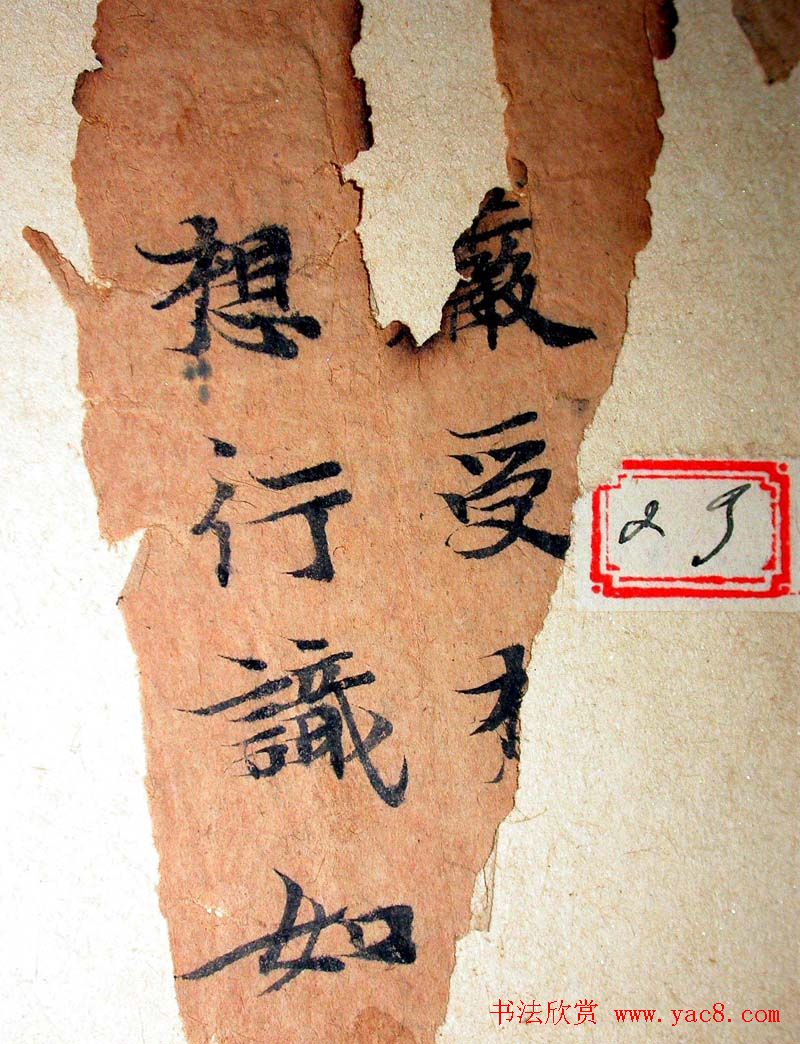 嚴受
想行識如
29
书法欣赏 www.yac8.com